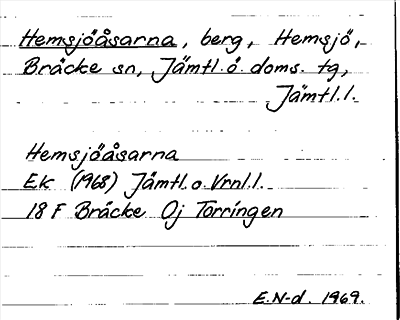 Hemsjöåsarna, berg, Hemsjö,
Bräcke sn, Jämtl. ö. doms. tg,
Jämtl. l.
Hemsjöåsarna
Ek (1968) Jämtl. o. Vrnl. l.
18 F Bräcke Oj Torringen
E. N-d. 1969.